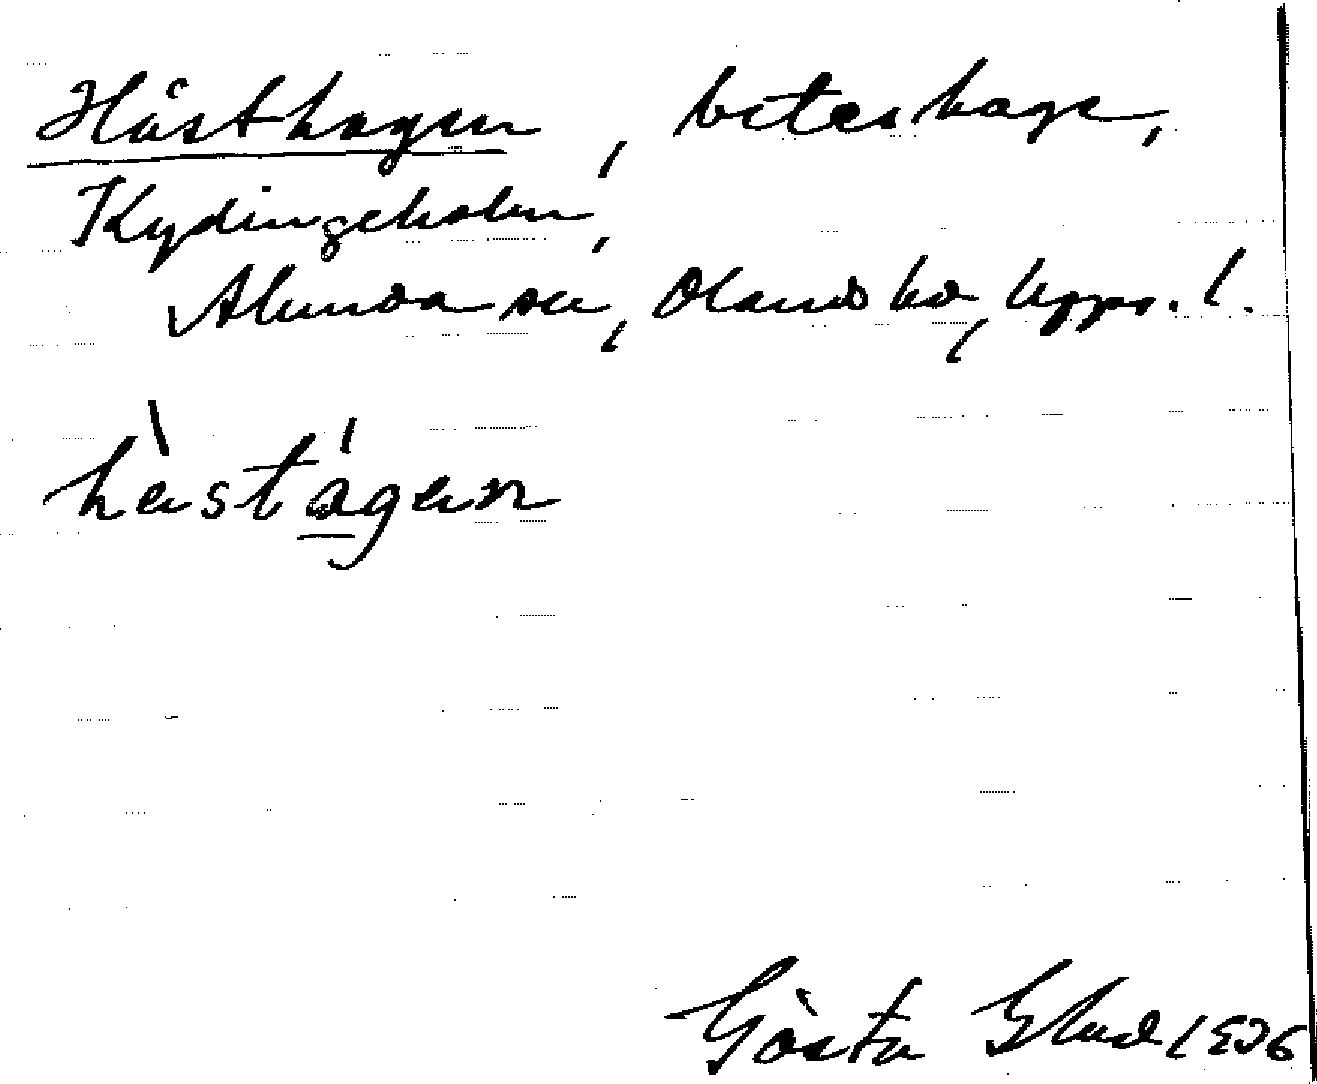 Hästhagen, beteshage,
Kydingeholm,
Alunda sn, Olands hd, Upps. l.
hästagan
Gösta Eklund 1936